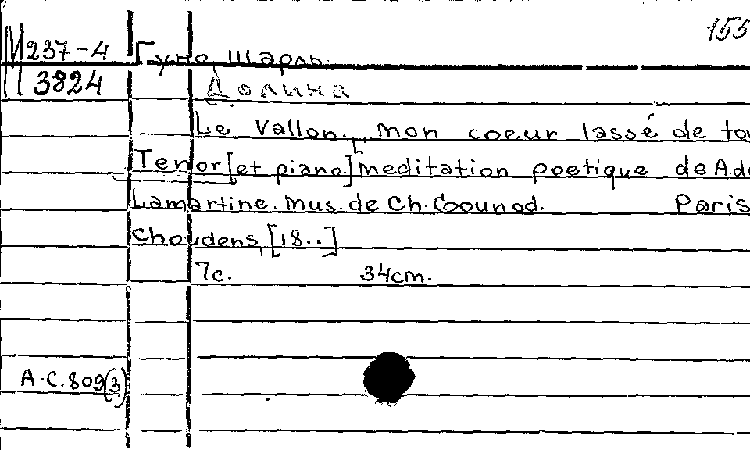 155
М 237-4 Гуно, Шарль.
3824 Долина
Le Vallon. mon coeur lassé de to
Tenor [et piano] meditation poetique de Ad
Lamartine. Mus. de Ch. Gounod. Paris
Choudens, [18..]
7c. 34cm.
A.C.809(3)